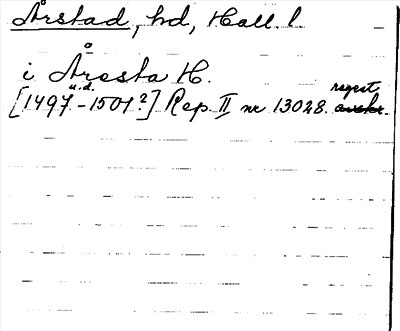 Årstad, hd, Hall. l.
i Årosta H.
u.d. regest
[1497-1501?] Rep. II nr 13028. avskr.